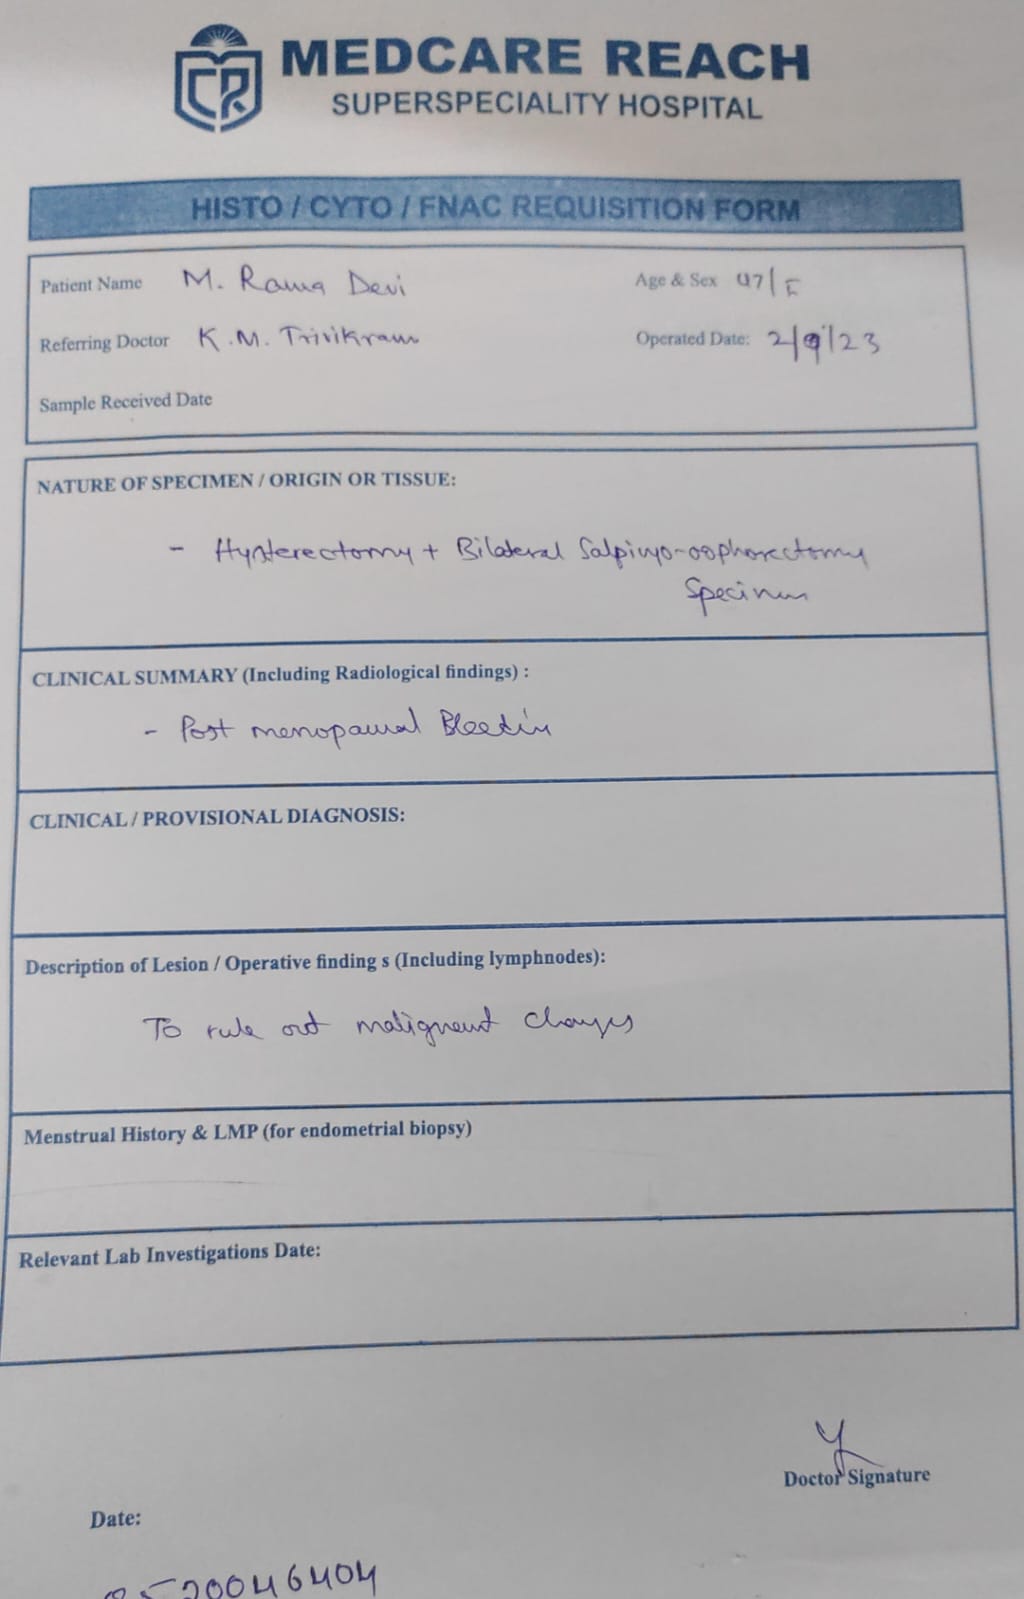 MEDCARE REACH
SUPERSPECIALITY HOSPITAL
HISTO / CYTO / FNAC REQUISITION FORM
Patient Name M. Rama Devi Age & Sex 47/F
Referring Doctor K.M. Trivikram Operated Date: 2/9/23
Sample Received Date
NATURE OF SPECIMEN / ORIGIN OR TISSUE:
- Hysterectomy + Bilateral Salpingo-oophorectomy
Specimen
CLINICAL SUMMARY (Including Radiological findings) :
- Post menopausal Bleeding
CLINICAL / PROVISIONAL DIAGNOSIS:
Description of Lesion / Operative finding s (Including lymphnodes):
To rule out malignant changes
Menstrual History & LMP (for endometrial biopsy)
Relevant Lab Investigations Date:
Doctor Signature
Date: